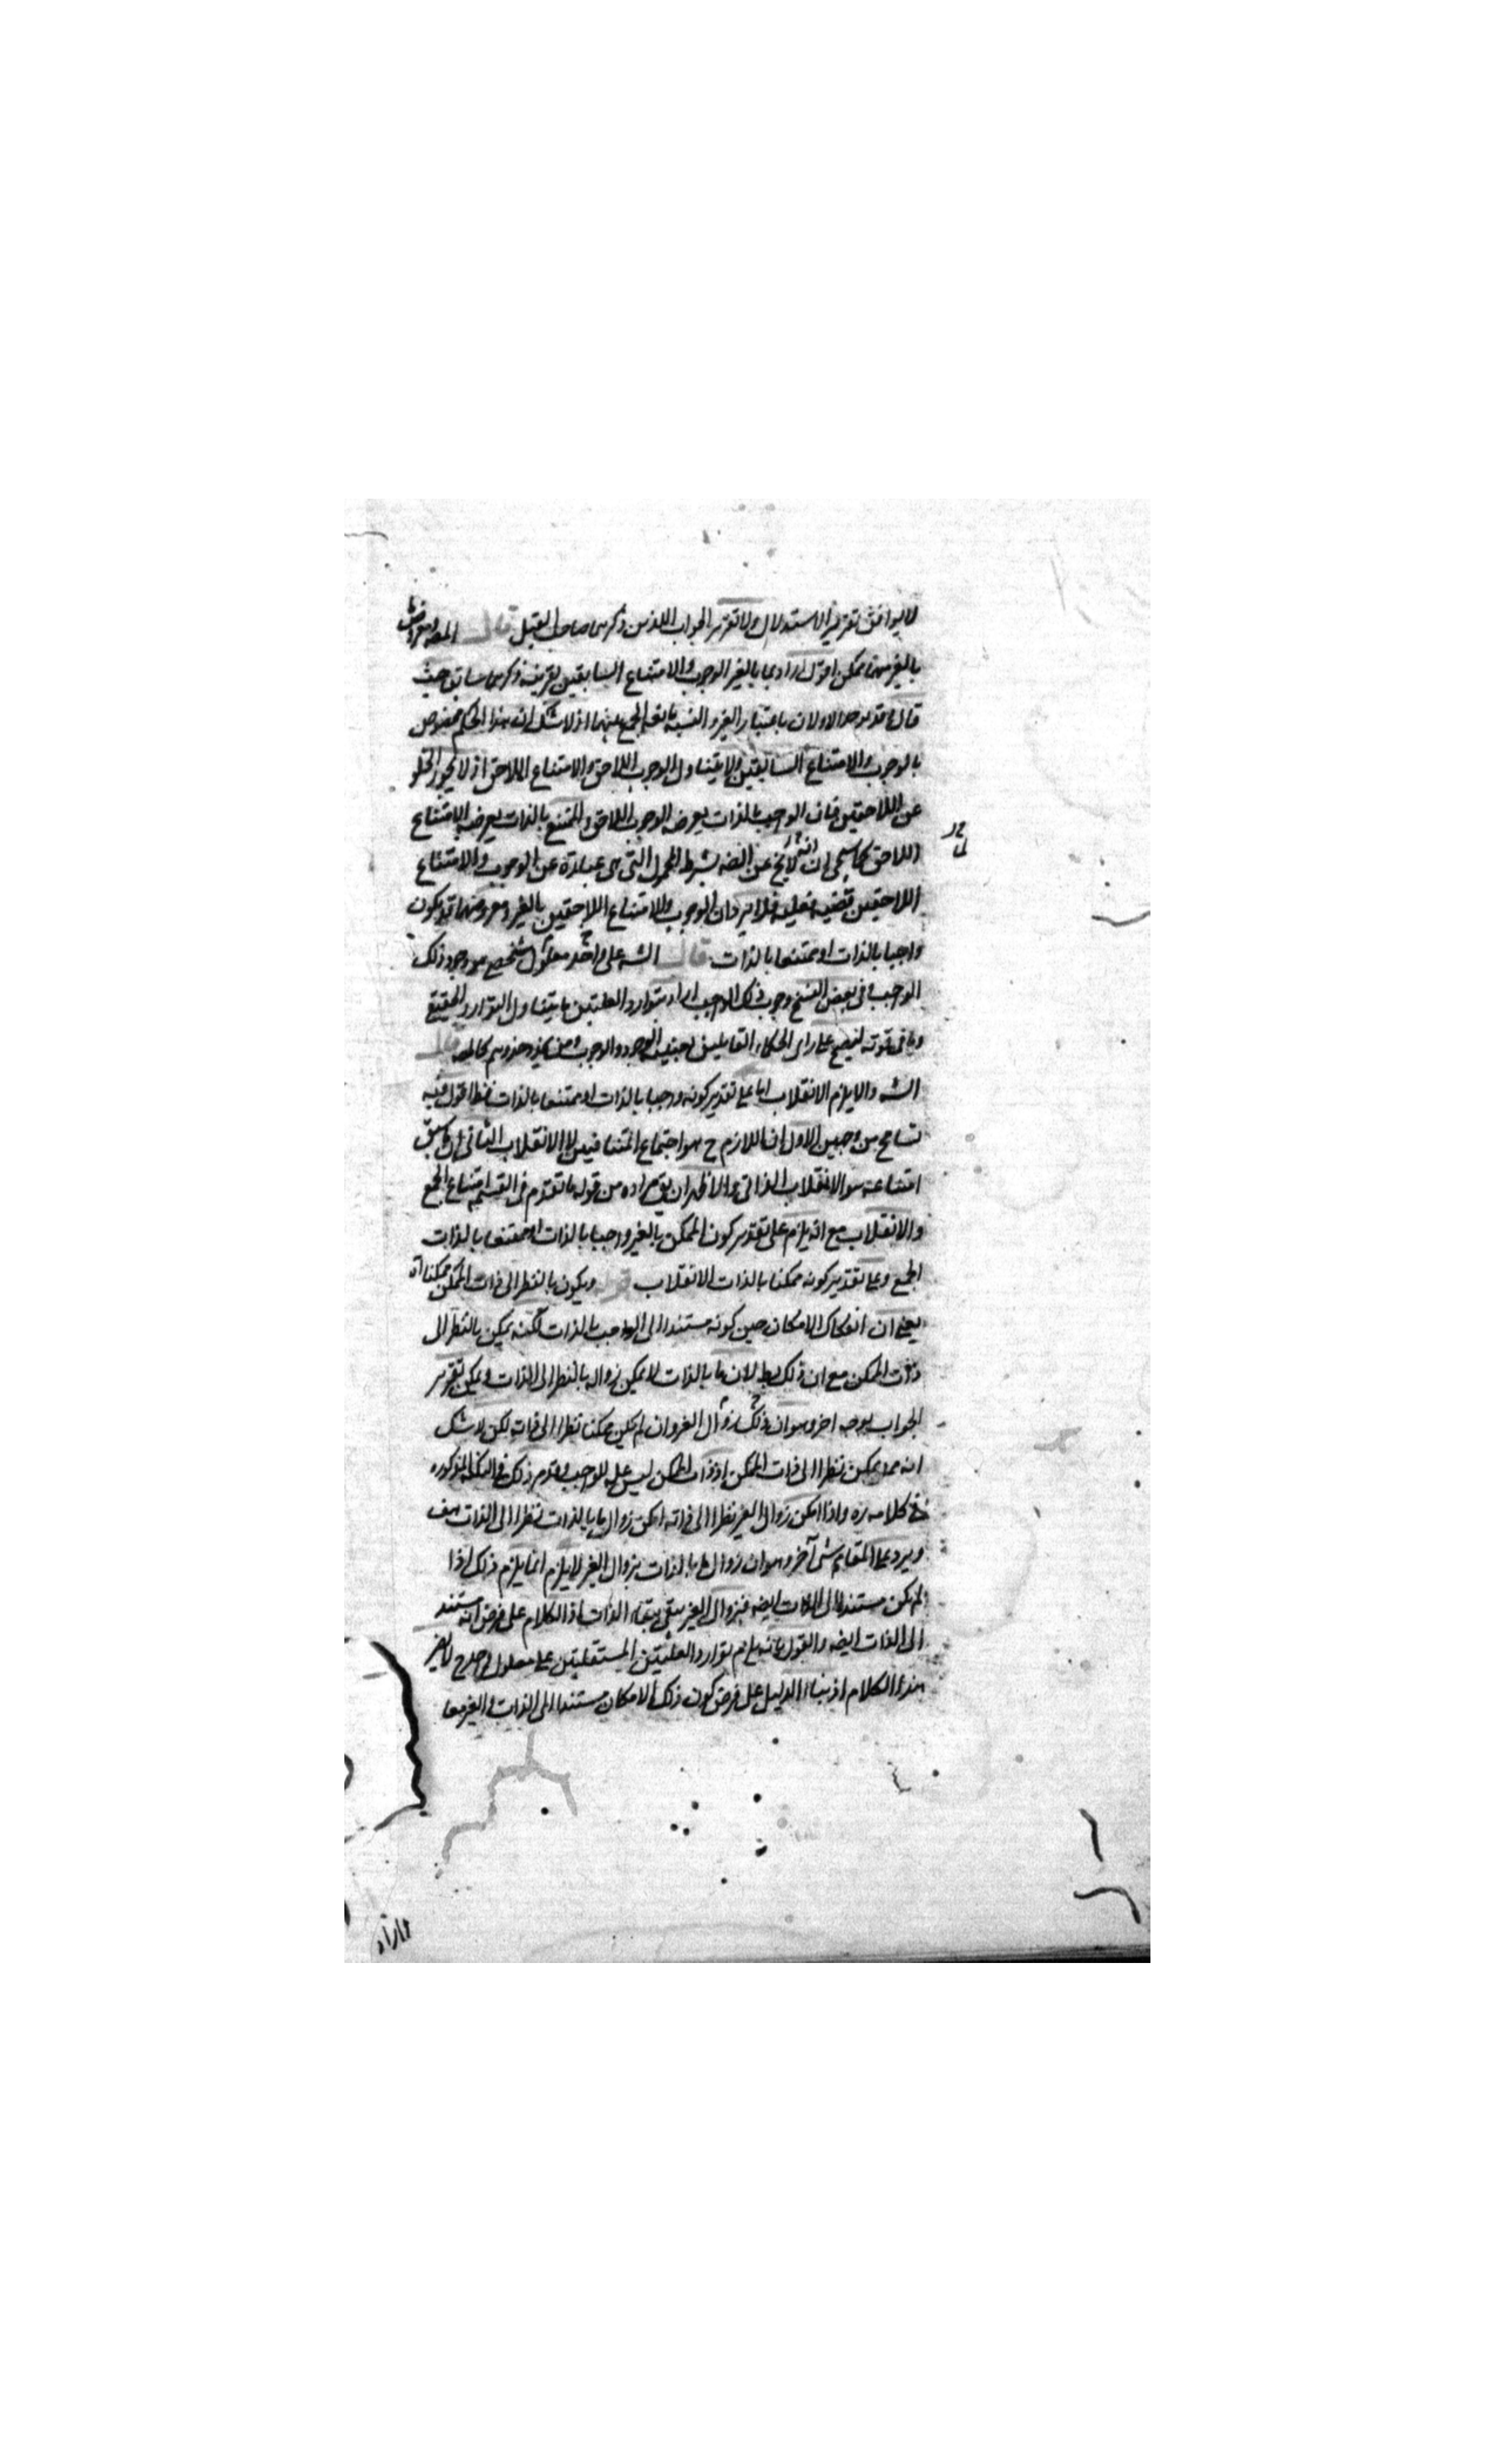 لا يوافق تقرير الاستدلال ولا تقرير الجواب اللذين ذكرهما صاحب القيل قال المصـ ومعروض
بالغير منهما ممكن اقول اراد بما بالغير الوجوب والامتناع السابقين بقرينة ذكرهما سابق حيث
قال وقد يوخذ الاولان باعتبار الغير والقسمة مانعة الجمع بينهما اذ لا شك ان هذا الحكم مخصوص
بالوجوب والامتناع السابقين ولا يتناول الوجوب اللاحق والامتناع اللاحق اذ لا يجوز الخلو
عن اللاحقين فان الواجب بالذات يعرضه الوجوب اللاحق والممتنع بالذات يعرضه الامتناع
اللاحق كما سيجئ ان انه لا يخ عن الضه بشرط المحمول التي هي عبارة عن الوجوب والامتناع
اللاحقين قضيه فعليه فلا يرد ان الوجوب والامتناع اللاحقين بالغير ومعروضهما قد يكون
واجبا بالذات او ممتنعا بالذات قال الشه على واحد معلول شخصي هو وجود ذلك
الواجب وفى بعض النسخ وجوب ذلك الواجب اراد بتوارد العلتين ما يتناول التوارد الحقيقي
وما فى قوته ليصح على راى الحكماء القايلين بعينيه الوجود والوجوب ومن يحذو حذوهم كالمصـ قال
الشه والا يلزم الانقلاب اما على تقدير كونه واجبا بالذات او ممتنعا بالذات فظ اقول فيه
تسامح من وجهين الاول ان اللازم ح هو اجتماع المتنافيين لا الانقلاب الثانى ان ما سبق
امتناعه هو الانقلاب الذاتى والاظهر ان يق مراده من قوله ما تقدم فى القسمة امتناع الجمع
والانقلاب مع انه يلزم على تقدير كون الممكن بالغير واجبا بالذات او ممتنعا بالذات
الجمع وعلى تقدير كونه ممكنا بالذات الانقلاب قوله ويكون بالنظر الى ذات الممكن ممكنا اه
يعنى ان انفكاك الامكان حين كونه مستندا الى الواجب بالذات لكنه يمكن بالنظر الى
ذات الممكن مع ان ذلك بط لان ما بالذات لا يمكن زواله بالنظر الى الذات ويمكن تقرير
الجواب بوجه اخر وهو ان ذلك زوال الغير وان لم يكن ممكنا نظرا الى ذاته لكن لا شك
انه مما يمكن نظرا الى ذات الممكن اذ ذات الممكن ليس عله للواجب وقدم ذلك فى النكته المذكوره
فى كلامه ره واذا امكن زوال الغير نظرا الى ذاته امكن زوال ما بالذات نظرا الى الذات هف
ويرد على المقام شى آخر وهو ان زوال ما بالذات بزوال الغير لا يلزم انما يلزم ذلك اذا
لم يكن مستندا الى الذات ايضه فبزوال الغير يبقى ببقاء الذات اذ الكلام على فرض انه مستند
الى الذات ايضه والقول بانه يلزم توارد العلتين المستقلتين على معلول واحد ح لا يضر
هذا الكلام اذ بناء الدليل على فرض كون ذلك الامكان مستندا الى الذات والغير معا